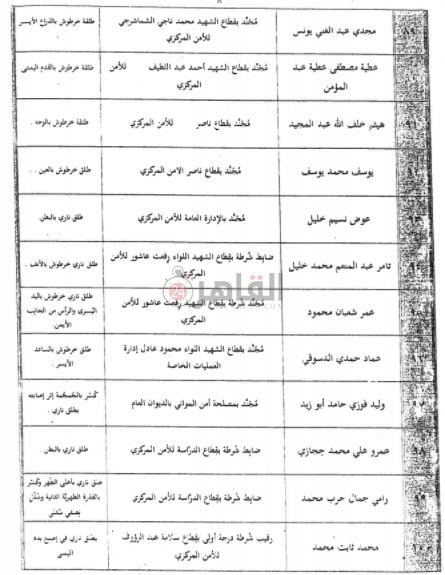 ٨
٨٩ مجدي عبد الغني يونس
مُجَنَّد بقطاع الشهيد محمد ناجي الشماشرجي
للأمن المركزي
طلقة خرطوش بالذراع الأيسر
عطية مصطفى عطية عبد
المؤمن
مُجَنَّد بقطاع الشهيد أحمد عبد اللطيف للأمن
المركزي
طلقة خرطوش بالقدم اليمنى
٩١ هيثم خلف الله عبد المجيد
مُجَنَّد بقطاع ناصر للأمن المركزي
طلقة خرطوش بالوجه .
يوسف محمد يوسف
مُجَنَّد بقطاع ناصر الأمن المركزي
طلق خرطوش بالعين . .
عوض نسيم خليل
مُجَنَّد بالإدارة العامة للأمن المركزي
طلق ناري بالبطن
تامر عبد المنعم محمد خليل
ضابط شُرطة بقطاع الشهيد اللواء رفعت عاشور للأمن
المركزي
طلق ناري خرطوش بالأنف .
عمر شعبان محمود
مُجَنَّد شرطة بقطاع الشهيد رفعت عاشور للأمن
المركزي
طلق ناري خرطوش باليد
اليُسرى والرأس من الجانب
الأيمن.
عماد حمدي الدسوقي
مُجَنَّد بقطاع الشهيد اللواء محمود عادل إدارة
العمليات الخاصة
طلق خرطوش بالساعد
الأيسر .
٩٧ وليد فوزي حامد أبو زيد
مُجَنَّد بمصلحة أمن المواني بالديوان العام
كُسر بالجُمجمة إثر إصابته
بطلق ناري .
٩٨ عمرو علي محمد حجازي
ضابط شُرطة بقطاع الدرَّاسة للأمن المركزي
طلق ناري بالبطن.
٩٩ رامي جمال حرب محمد
ضابط شُرطة بقطاع الدرَّاسة للأمن المركزي
طلق ناري بأعلى الظهر وكُسر
بالفقرة الظهريَّة الثانية وشَلَل
نصفي سُفلي
محمد ثابت محمد
رقيب شُرطة درجة أولى بقطاع سلامة عبد الرؤوف
للأمن المركزي
بطلق ناري في إصبع يده
اليسى
القاهرة
24